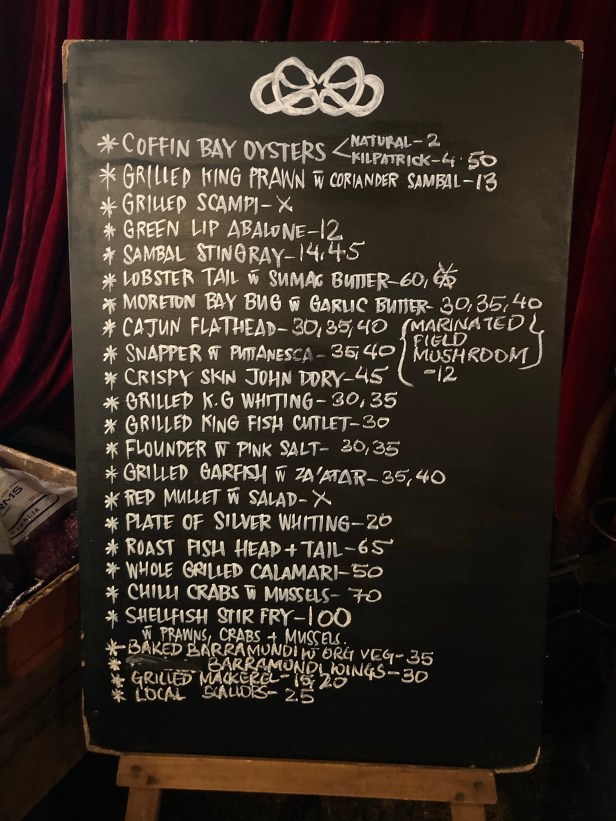 * COFFIN BAY OYSTERS < NATURAL - 2
KILPATRICK - 4.50
* GRILLED KING PRAWN w̄ CORIANDER SAMBAL - 13
* GRILLED SCAMPI - X
* GREEN LIP ABALONE - 12
* SAMBAL STINGRAY - 14, 45
* LOBSTER TAIL w̄ SUMAC BUTTER - 60,
* MORETON BAY BUG w̄ GARLIC BUTTER - 30, 35, 40
* CAJUN FLATHEAD - 30, 35, 40
* SNAPPER w̄ PUTTANESCA - 35, 40
* CRISPY SKIN JOHN DORY - 45
(MARINATED
FIELD
MUSHROOM
- 12)
* GRILLED K.G WHITING - 30, 35
* GRILLED KING FISH CUTLET - 30
* FLOUNDER w̄ PINK SALT - 30, 35
* GRILLED GARFISH w̄ ZA'ATAR - 35, 40
* RED MULLET w̄ SALAD - X
* PLATE OF SILVER WHITING - 20
* ROAST FISH HEAD + TAIL - 65
* WHOLE GRILLED CALAMARI - 50
* CHILLI CRABS w̄ MUSSELS - 70
* SHELLFISH STIR FRY - 100
w̄ PRAWNS, CRABS + MUSSELS.
* BAKED BARRAMUNDI w̄ ORG VEG - 35
* BARRAMUNDI WINGS - 30
* GRILLED MACKEREL - 20
* LOCAL